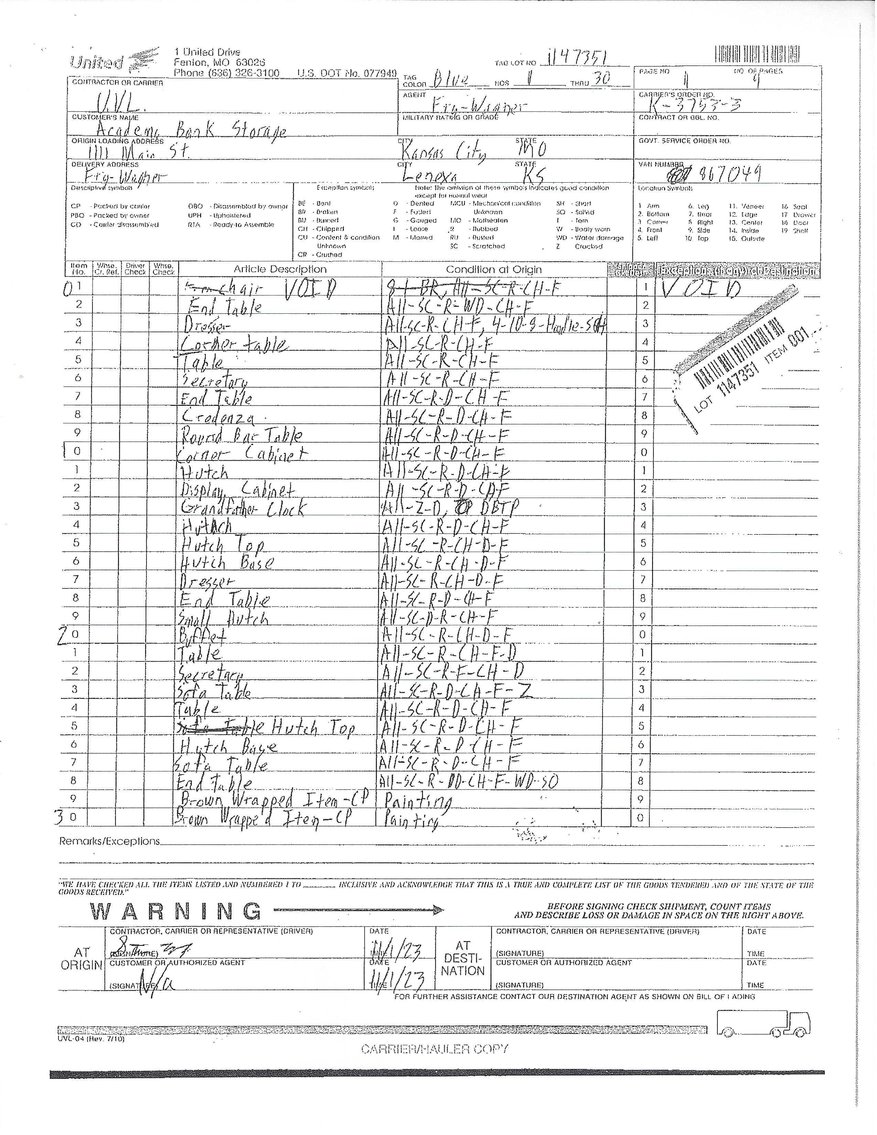 United
1 United Drive
Fenton, MO 63026
Phone (636) 326-3100 U.S. DOT No. 077949
TAG LOT NO. 1147351
TAG COLOR Blue NOS 1 THRU 30
PAGE NO 1 NO OF PAGES
CONTRACTOR OR CARRIER
U.V.L.
AGENT
Fry-Wagner
CARRIER'S ORDER NO.
K-3753-3
CUSTOMER'S NAME
Academy Bank Storage
MILITARY RATING OR GRADE
CONTRACT OR GBL NO.
ORIGIN LOADING ADDRESS
1111 Main St.
CITY
Kansas City
STATE
MO
GOVT. SERVICE ORDER NO.
DELIVERY ADDRESS
Fry-Wagner
CITY
Lenexa
STATE
KS
VAN NUMBER
867049
Descriptive symbols
CP - Packed by carrier
PBO - Packed by owner
CD - Carrier disassembled
DBO - Disassembled by owner
UPH - Upholstered
RTA - Ready to Assemble
Exception symbols
Note: the omission of these symbols indicates good condition except for normal wear
BE - Bent
BR - Broken
BU - Burned
CH - Chipped
CU - Content & condition Unknown
CR - Crushed
D - Dented
F - Faded
G - Gouged
L - Loose
M - Marred
MCU - Mechanical condition Unknown
MO - Motheaten
R - Rubbed
RU - Rusted
SC - Scratched
SH - Short
SO - Soiled
T - Torn
W - Badly worn
WD - Water damage
Z - Cracked
Location Symbols
1 Arm
2 Bottom
3 Corner
4 Front
5 Left
6 Leg
7 Rear
8 Right
9 Side
10 Top
11. Veneer
12. Edge
13. Center
14. Inside
15. Outside
16 Seat
17 Drawer
18 Door
19 Shelf
Item No. Whse. Cr. Ref. Driver Check Whse. Check Article Description Condition at Origin Exceptions (if any) at Destination
01 Chair VOID 8+ BR, All-SC-R-CH-F 1 VOID
2 End Table All-SC-R-WD-CH-F 2
3 Dresser All-SC-R-CH-F, 4-10-9-Handle-SCH 3
4 Corner table All-SC-R-CH-F 4
5 Table All-SC-R-CH-F 5
6 Secretary All-SC-R-CH-F 6
7 End Table All-SC-R-D-CH-F 7
8 Credenza All-SC-R-D-CH-F 8
9 Round Bar Table All-SC-R-D-CH-F 9
10 Corner Cabinet All-SC-R-D-CH-F 0
1 Hutch All-SC-R-D-CH-F 1
2 Display Cabinet All-SC-R-D-CHF 2
3 Grandfather Clock All-Z-D, CP DBTP 3
4 Hutch All-SC-R-D-CH-F 4
5 Hutch Top All-SC-R-CH-D-F 5
6 Hutch Base All-SC-R-CH-D-F 6
7 Dresser All-SC-R-CH-D-F 7
8 End Table All-SC-R-D-CH-F 8
9 Small Hutch All-SC-D-R-CH-F 9
20 Buffet All-SC-R-CH-D-F 0
1 Table All-SC-R-CH-F-D 1
2 Secretary All-SC-R-F-CH-D 2
3 Sofa Table All-SC-R-D-CH-F-Z 3
4 Table All-SC-R-D-CH-F 4
5 Sofa Table Hutch Top All-SC-R-D-CH-F 5
6 Hutch Base All-SC-R-D-CH-F 6
7 Sofa Table All-SC-R-D-CH-F 7
8 End Table All-SC-R-DD-CH-F-WD-SO 8
9 Brown Wrapped Item-CP Painting 9
30 Brown Wrapped Item-CP Painting 0
LOT 1147351 ITEM 001
Remarks/Exceptions
"WE HAVE CHECKED ALL THE ITEMS LISTED AND NUMBERED 1 TO ______ INCLUSIVE AND ACKNOWLEDGE THAT THIS IS A TRUE AND COMPLETE LIST OF THE GOODS TENDERED AND OF THE STATE OF THE GOODS RECEIVED."
WARNING
BEFORE SIGNING CHECK SHIPMENT, COUNT ITEMS
AND DESCRIBE LOSS OR DAMAGE IN SPACE ON THE RIGHT ABOVE.
AT ORIGIN
CONTRACTOR, CARRIER OR REPRESENTATIVE (DRIVER)
(SIGNATURE)
DATE
11/1/23
CUSTOMER OR AUTHORIZED AGENT
(SIGNATURE) N/a
DATE
TIME 11/1/23
AT DESTI-NATION
CONTRACTOR, CARRIER OR REPRESENTATIVE (DRIVER)
DATE
(SIGNATURE)
TIME
CUSTOMER OR AUTHORIZED AGENT
DATE
(SIGNATURE)
TIME
FOR FURTHER ASSISTANCE CONTACT OUR DESTINATION AGENT AS SHOWN ON BILL OF LADING
UVL-04 (Rev. 7/10)
CARRIER/HAULER COPY